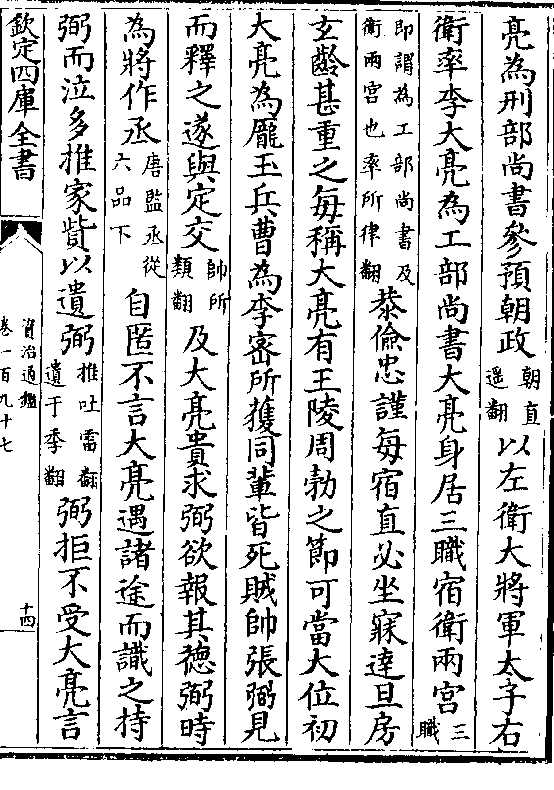 亮為刑部尚書參預朝政朝直遥翻以左衛大將軍太子右
衛率李大亮為工部尚書大亮身居三職宿衛兩宫三職
即謂為工部尚書及衛兩宫也率所律翻恭儉忠謹每宿直必坐寐達旦房
玄齡甚重之每稱大亮有王陵周勃之節可當大位初
大亮為龎玉兵曹為李密所獲同輩皆死賊帥張弼見
而釋之遂與定交帥所類翻及大亮貴求弼欲報其德弼時
為將作丞唐監丞從六品下自匿不言大亮遇諸途而識之持
弼而泣多推家貲以遺弼推吐雷翻遺于季翻弼拒不受大亮言
欽定四庫全書
資治通鑑
卷一百九十七
十四